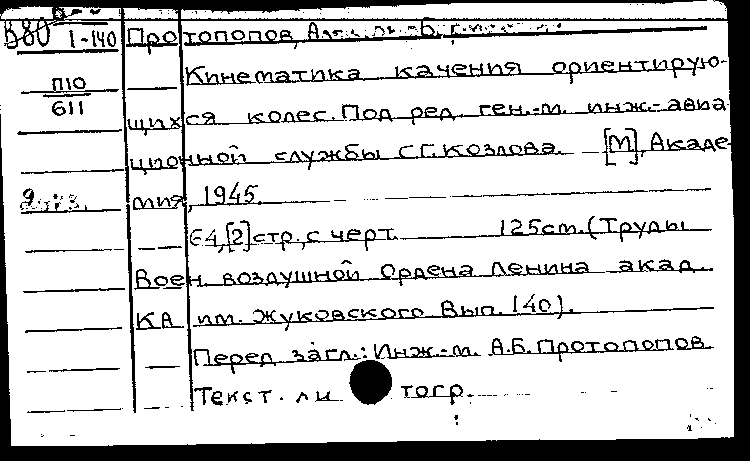 В80 1-140 Протопопов,
П10
611
Кинематика качения ориентирую-
щихся колес. Под ред. ген.-м. инж.-авиа
ционной службы С.Г. Козлова. [М], Акаде
мия, 1945.
64,[2] стр., с черт. 125 см. (Труды
Воен. воздушной Ордена Ленина акад.
КА им. Жуковского Вып. 140).
Перед загл.: Инж.-м. А.Б. Протопопов.
Текст. ли тогр.